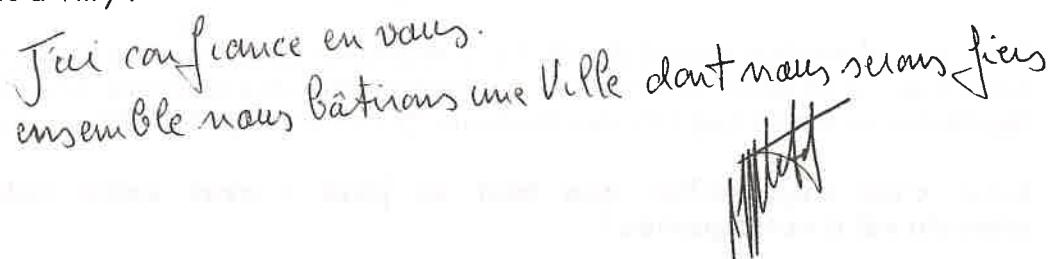 J'ai confiance en vous.
ensemble nous bâtirons une Ville dont nous serons fiers